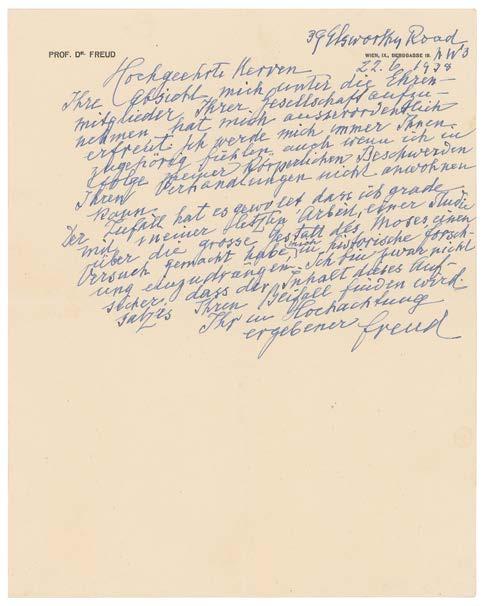 39 Elsworthy Road
PROF. DR. FREUD
WIEN, IX., BERGGASSE 19.
N W 3
22.6.1938
Hochgeehrte Herren
Ihre Absicht mich unter die Ehren-
mitglieder Ihrer Gesellschaft aufzu-
nehmen hat mich ausserordentlich
erfreut. Ich werde mich immer Ihnen
zugehörig fühlen, auch wenn ich in
folge meiner körperlichen Beschwerden
Ihren Verhandlungen nicht anwohnen
kann.
Der Zufall hat es gewollt dass ich grade
mit meiner letzten Arbeit, einer Studie
über die grosse Gestalt des Moses einen
Versuch gemacht habe, mich in historische Forsch-
ung einzudrängen. Ich bin zwar nicht
sicher, dass der Inhalt dieses Auf-
satzes Ihren Beifall finden wird
Ihr in Hochachtung
ergebener Freud